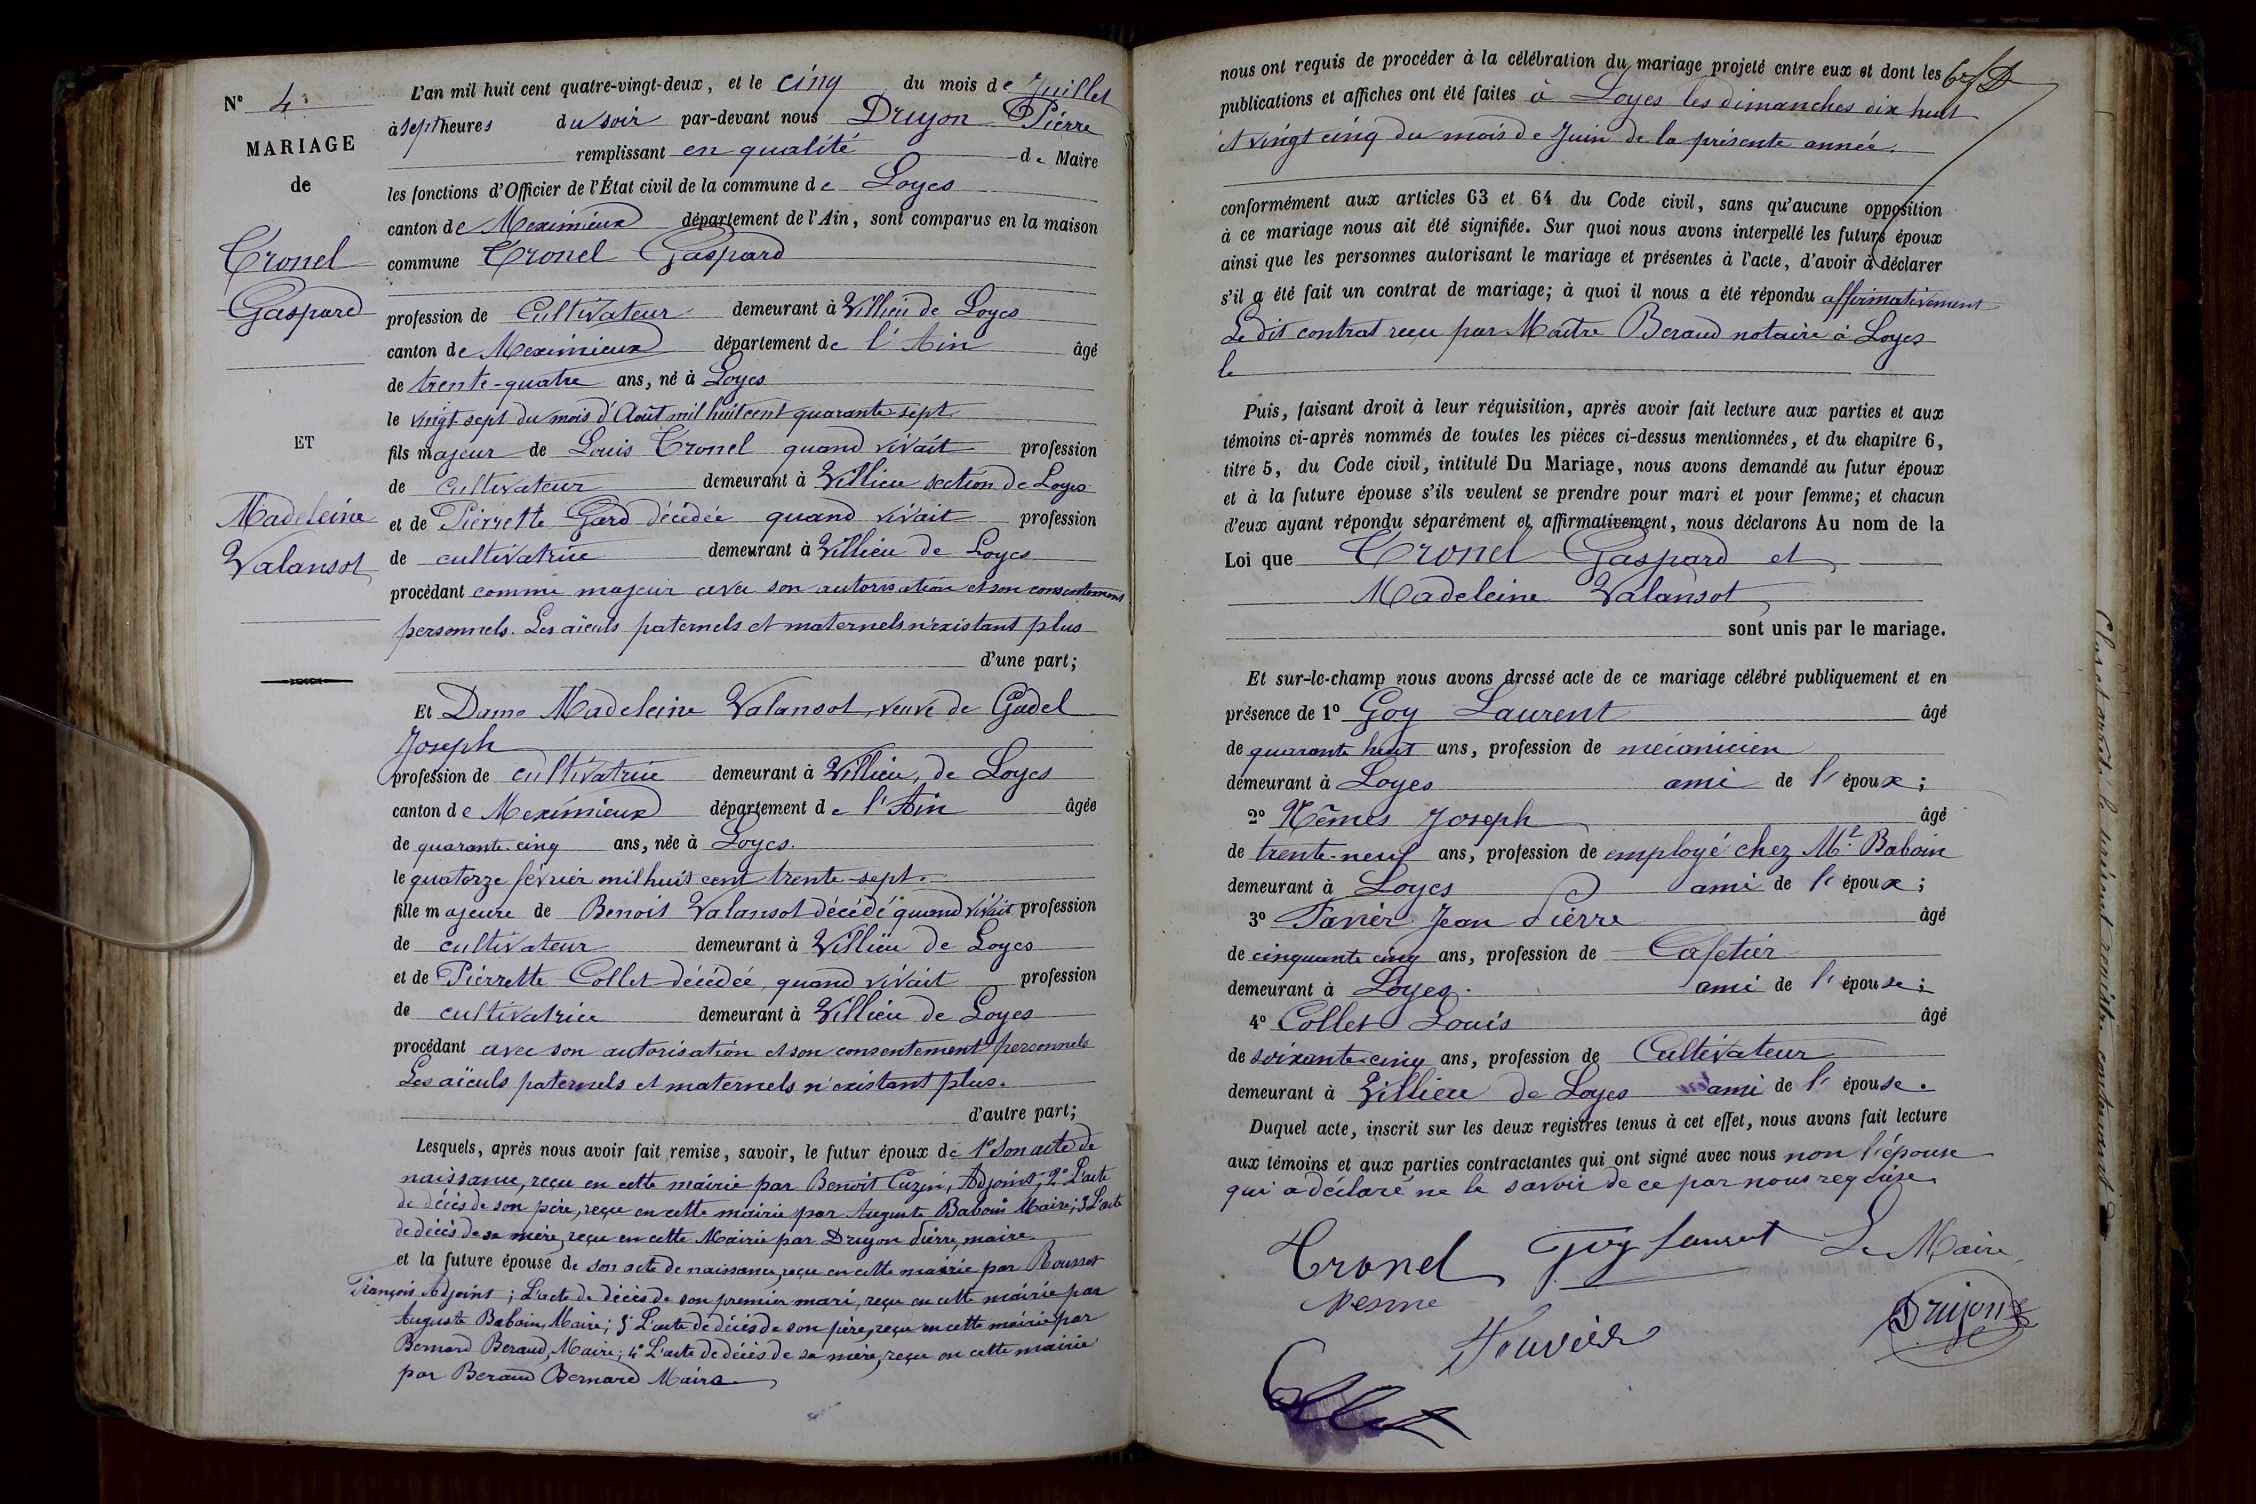 N° 4
MARIAGE
de
Tronel
Gaspard
ET
Madeleine
Valansot
L'an mil huit cent quatre-vingt-deux, et le cinq du mois de Juillet
à sept heures du soir par-devant nous Druyon Pierre
remplissant en qualité de Maire
les fonctions d'Officier de l'État civil de la commune de Loyes
canton de Meximieux département de l'Ain, sont comparus en la maison
commune Tronel Gaspard
profession de Cultivateur demeurant à Villieu de Loyes
canton de Meximieux département de l'Ain âgé
de trente-quatre ans, né à Loyes
le vingt-sept du mois d'Août mil huit cent quarante-sept.
fils majeur de Louis Tronel quand vivait profession
de cultivateur demeurant à Villieu section de Loyes
et de Pierrette Gard décédée quand vivait profession
de cultivatrice demeurant à Villieu de Loyes
procédant comme majeur avec son autorisation et son consentement
personnels. Les aïeuls paternels et maternels n'existant plus
d'une part;
Et Dame Madeleine Valansot, veuve de Gadel
Joseph
profession de cultivatrice demeurant à Villieu, de Loyes
canton de Meximieux département de l'Ain âgée
de quarante-cinq ans, née à Loyes.
le quatorze février mil huit cent trente-sept.
fille majeure de Benoit Valansot décédé quand vivait profession
de cultivateur demeurant à Villieu de Loyes
et de Pierrette Collet décédée, quand vivait profession
de cultivatrice demeurant à Villieu de Loyes
procédant avec son autorisation et son consentement personnels
Les aïeuls paternels et maternels n'existant plus.
d'autre part;
Lesquels, après nous avoir fait remise, savoir, le futur époux de 1° Son acte de
naissance, reçu en cette mairie par Benoit Cuzin, Adjoint; 2° L'acte
de décès de son père, reçu en cette mairie par Auguste Baboin Maire; 3° L'acte
de décès de sa mère, reçu en cette Mairie par Druyon Pierre, maire
et la future épouse de son acte de naissance, reçu en cette mairie par Rousset
François Adjoint; L'acte de décès de son premier mari, reçu en cette mairie par
Auguste Baboin, Maire; 3° L'acte de décès de son père, reçu en cette mairie par
Bernard Beraud, Maire; 4° L'acte de décès de sa mère, reçu en cette mairie
par Beraud Bernard Maire
nous ont requis de procéder à la célébration du mariage projeté entre eux et dont les
publications et affiches ont été faites à Loyes les dimanches dix huit
et vingt cinq du mois de Juin de la présente année.
conformément aux articles 63 et 64 du Code civil, sans qu'aucune opposition
à ce mariage nous ait été signifiée. Sur quoi nous avons interpellé les futurs époux
ainsi que les personnes autorisant le mariage et présentes à l'acte, d'avoir à déclarer
s'il a été fait un contrat de mariage; à quoi il nous a été répondu affirmativement
Le dit contrat reçu par Maître Beraud notaire à Loyes
le
Puis, faisant droit à leur réquisition, après avoir fait lecture aux parties et aux
témoins ci-après nommés de toutes les pièces ci-dessus mentionnées, et du chapitre 6,
titre 5, du Code civil, intitulé Du Mariage, nous avons demandé au futur époux
et à la future épouse s'ils veulent se prendre pour mari et pour femme; et chacun
d'eux ayant répondu séparément et affirmativement, nous déclarons Au nom de la
Loi que Tronel Gaspard et
Madeleine Valansot
sont unis par le mariage.
Et sur-le-champ nous avons dressé acte de ce mariage célébré publiquement et en
présence de 1° Goy Laurent âgé
de quarante huit ans, profession de mécanicien
demeurant à Loyes ami de l'époux;
2° Nêmes Joseph âgé
de trente-neuf ans, profession de employé chez Mr. Baboin
demeurant à Loyes ami de l'époux;
3° Favier Jean Pierre âgé
de cinquante cinq ans, profession de Cafetier
demeurant à Loyes. ami de l'épouse;
4° Collet Louis âgé
de soixante-cinq ans, profession de Cultivateur
demeurant à Villieu de Loyes ami de l'épouse.
Duquel acte, inscrit sur les deux registres tenus à cet effet, nous avons fait lecture
aux témoins et aux parties contractantes qui ont signé avec nous non l'épouse
qui a déclaré ne le savoir de ce par nous requise.
Tronel Goy Laurent Le Maire
Nesme
Druyon
Collet